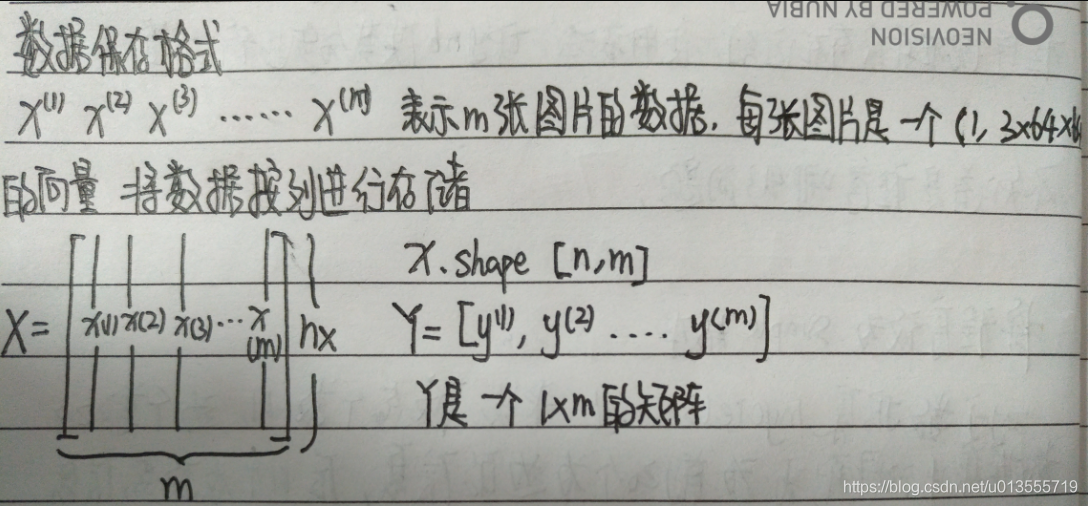 POWERED BY NUBIA
NEOVISION
数据保存格式
x⁽¹⁾ x⁽²⁾ x⁽³⁾ ...... x⁽ᵐ⁾ 表示m张图片的数据, 每张图片是一个 (1, 3x64x6
的向量 将数据按列进行存储
X = [ x(1) x(2) x(3) ... x(m) ] nx
m
X.shape [n, m]
Y = [y⁽¹⁾, y⁽²⁾ .... y⁽ᵐ⁾]
Y是一个 1xm 的矩阵
https://blog.csdn.net/u013555719